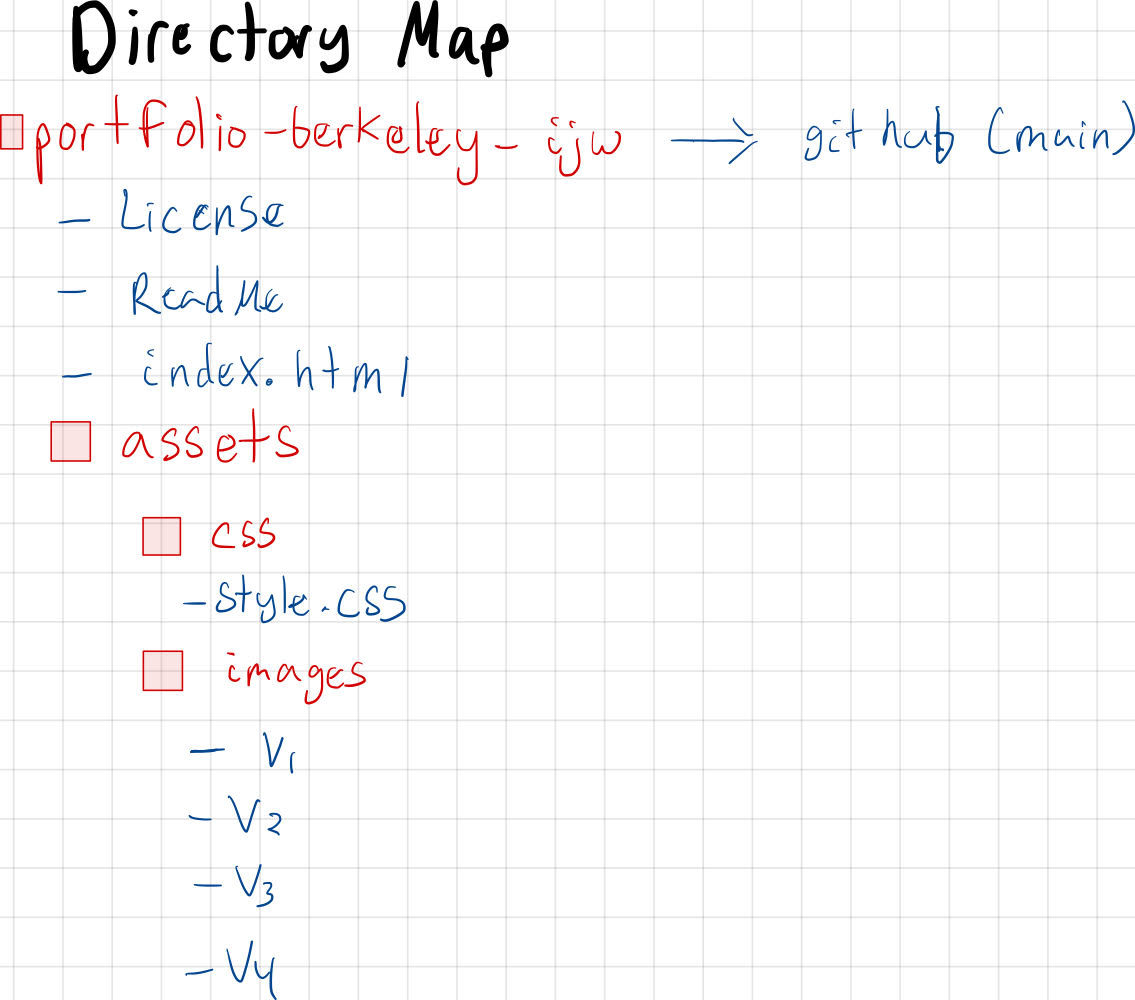 Directory Map
portfolio-berkeley-ijw → github (main)
- License
- ReadMe
- index.html
assets
css
-style.css
images
- V1
- V2
- V3
- V4